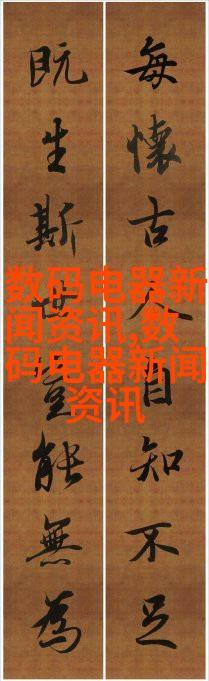 每懷古人自知不足
既生斯世豈能無為
数码电器新
闻资讯,数
码电器新闻
资讯